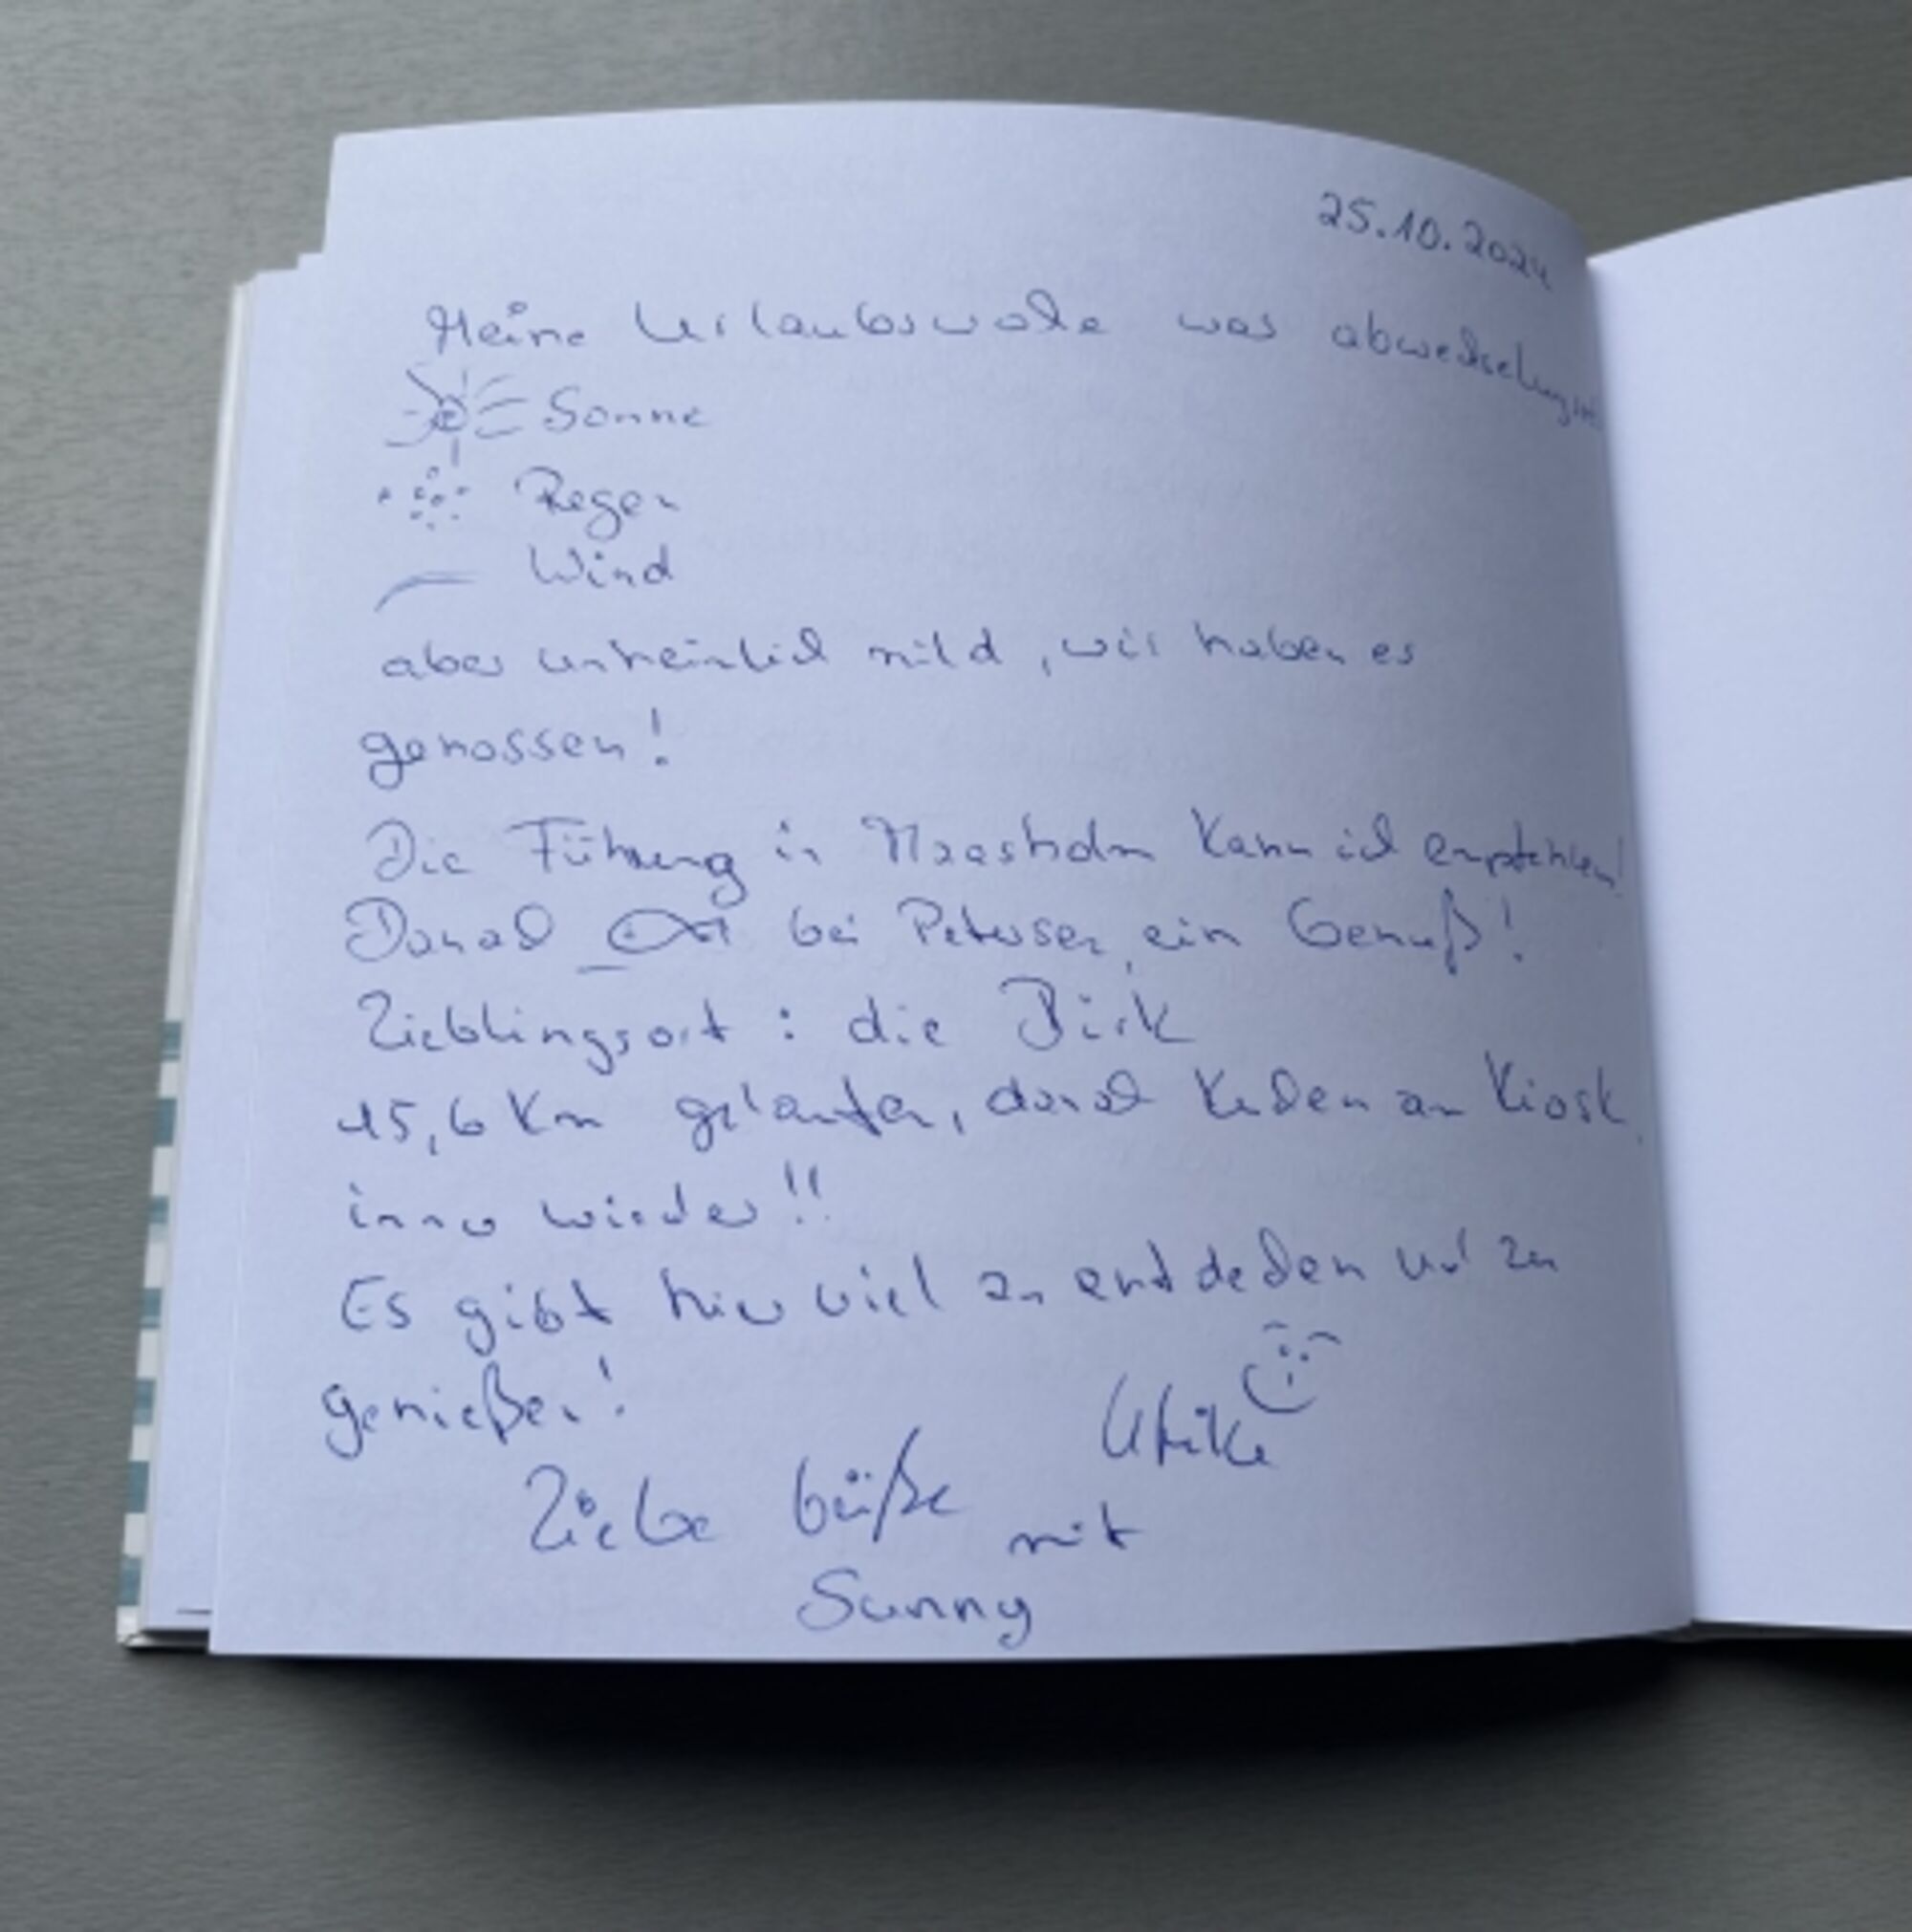 25.10.2024
Meine Urlaubswoche war abwechslungsr
Sonne
Regen
Wind
aber unheimlich mild, wir haben es
genossen!
Die Führung in Maasholm kann ich empfehlen!
Danach bei Petersen, ein Genuß!
Lieblingsort: die Birk
15,6 Km gelaufen, danach Kuchen am Kiosk,
immer wieder!!
Es gibt hier viel zu entdecken und zu
genießen!
Ulrike
Liebe Grüße
mit
Sunny